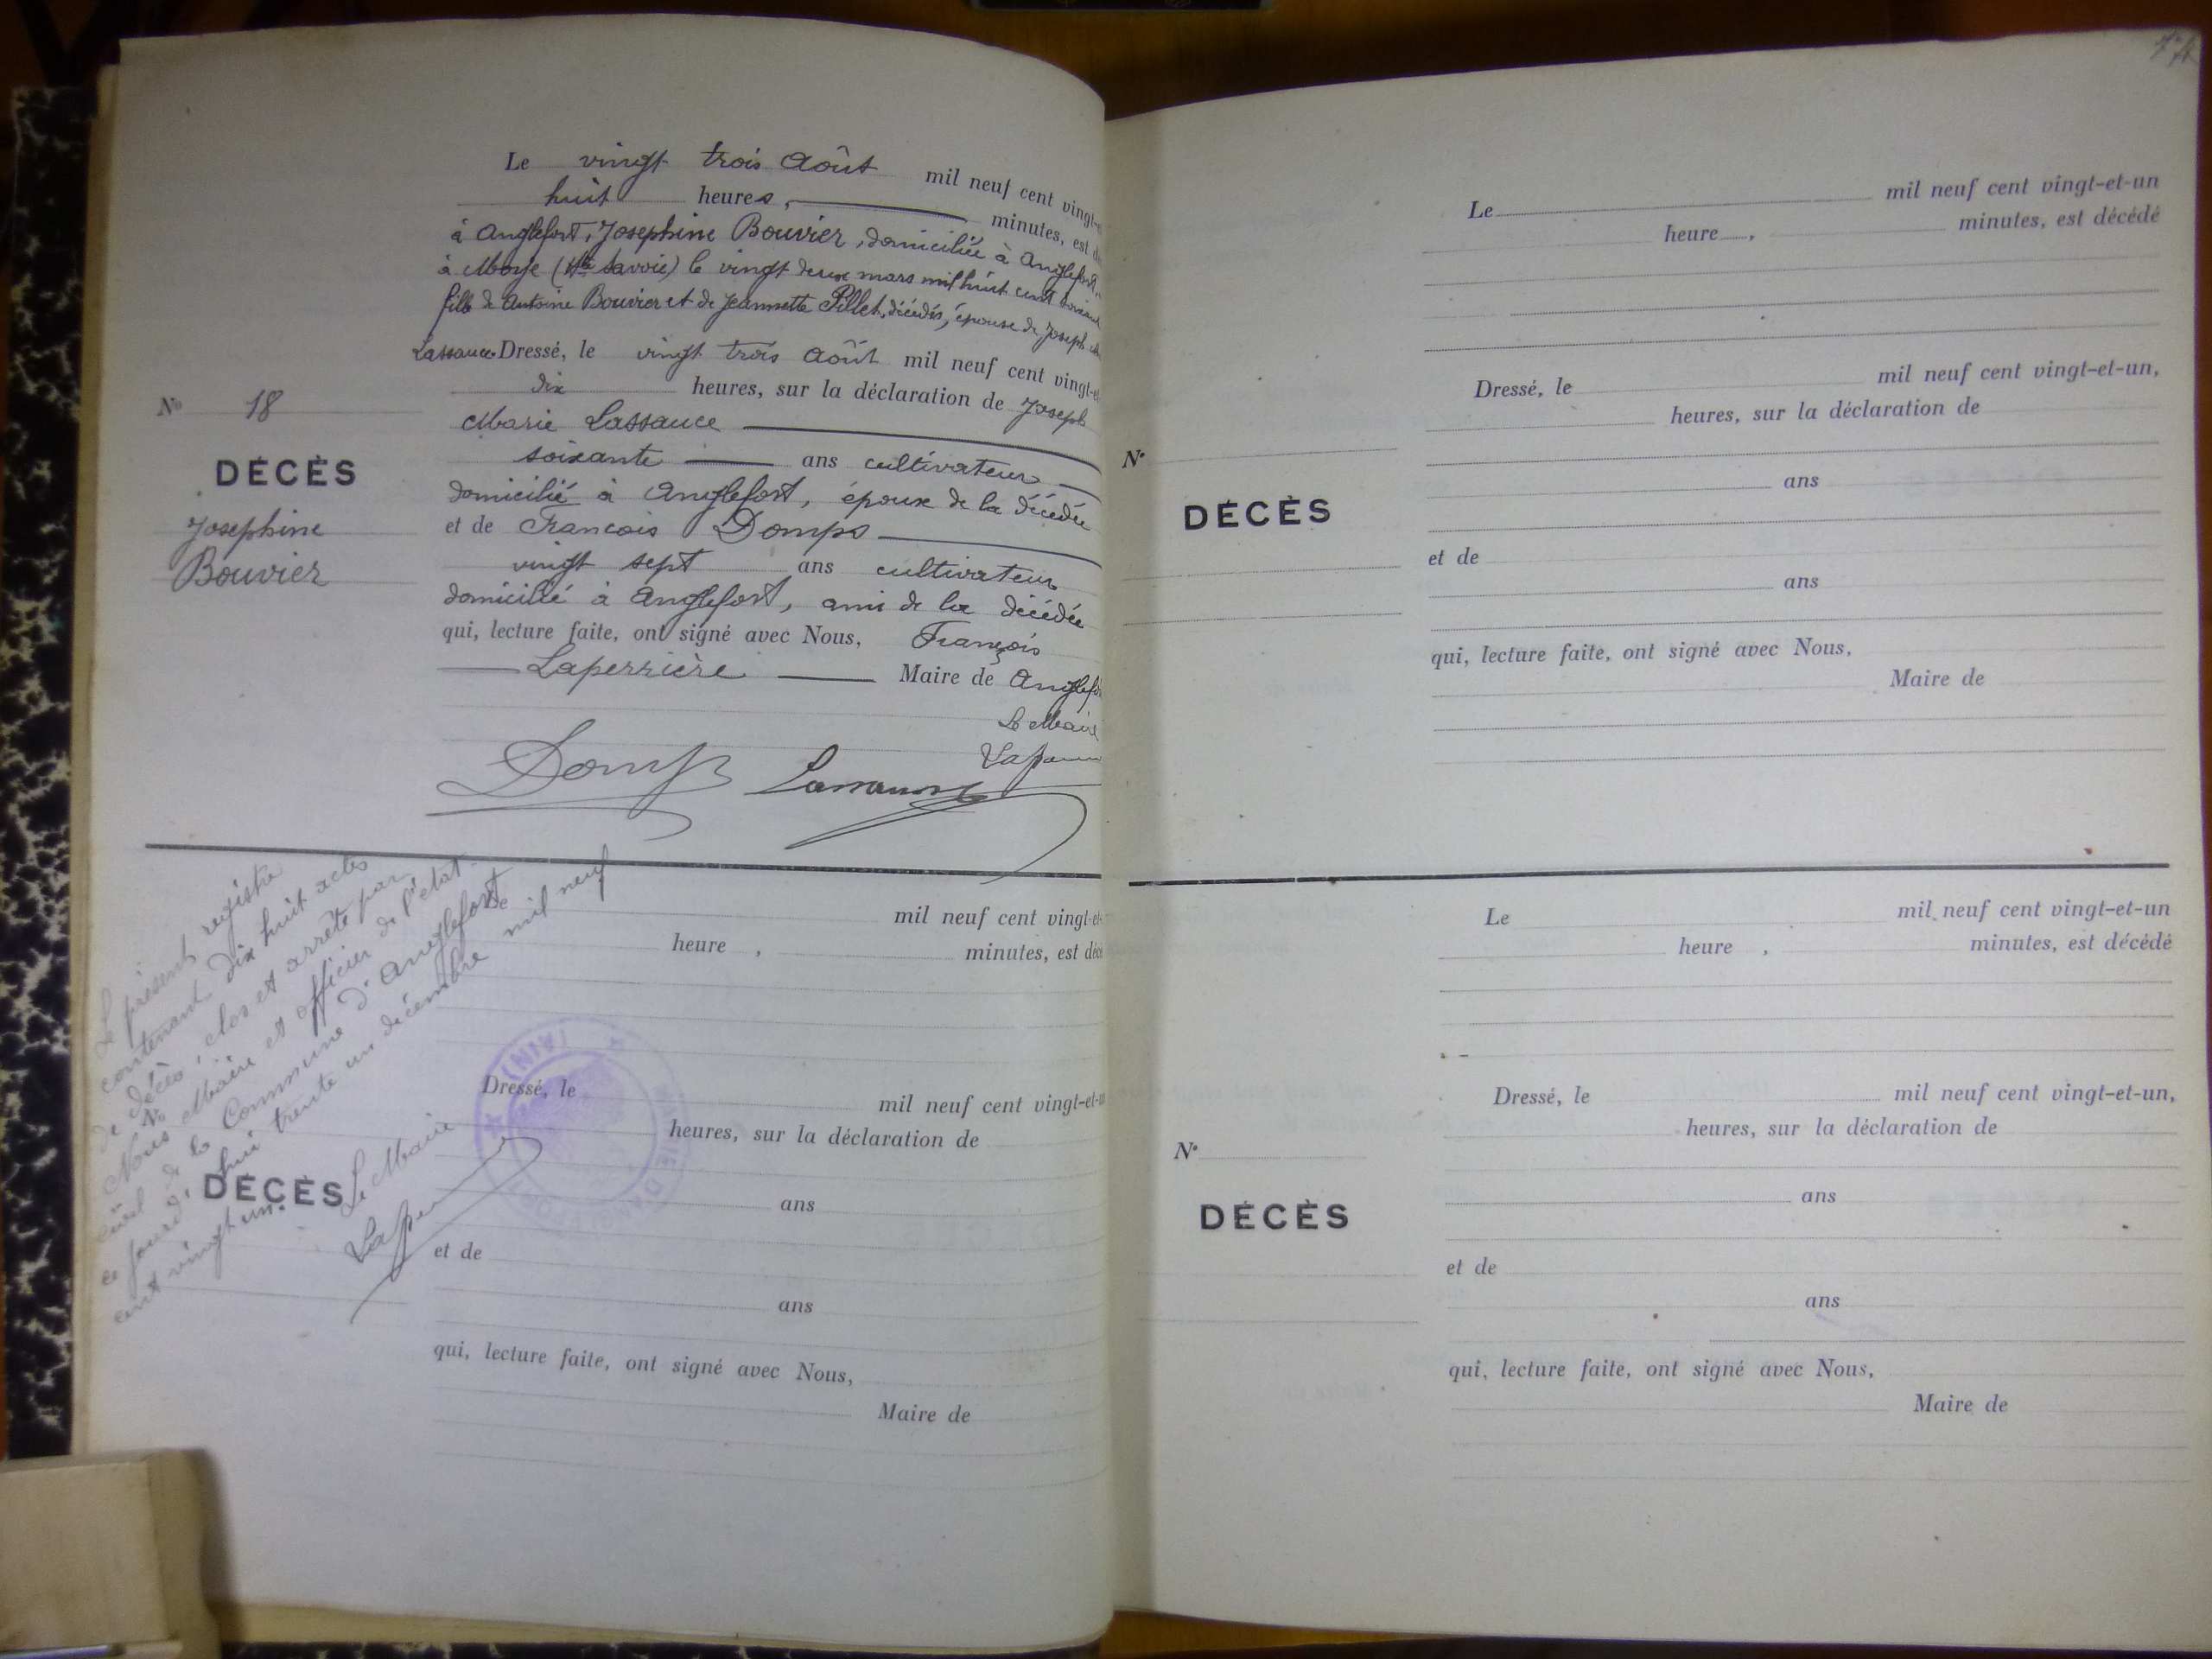 Le vingt trois Août mil neuf cent vingt-
huit heures, minutes, est
à Anglefort, Josephine Bouvier, domiciliée à Anglefort
à Moye (Hte Savoie) le vingt deux mars mil huit cent
fille de Antoine Bouvier et de Jeannette Pillet, décédés, épouse de Joseph
Lassauce Dressé, le vingt trois Août mil neuf cent vingt-
dix heures, sur la déclaration de Joseph
Marie Lassauce
soixante ans cultivateur
domicilié à Anglefort, époux de la décédée
et de Francois Domps
vingt sept ans cultivateur
domicilié à Anglefort, ami de la décédée
qui, lecture faite, ont signé avec Nous, François
Laperrière Maire de Anglefo
Le Maire
Domps Lassauce
No 18
DÉCÈS
Josephine
Bouvier
Le présent registre
contenant dix huit actes
de décès, clos et arrêté par
Nous Maire et officier de l'état
civil de la Commune d'Anglefort
ce jourd'hui trente un décembre mil neuf
cent vingt un.
Le Maire
MAIRIE D'ANGLEFORT (AIN)
Le mil neuf cent vingt-et-
heure , minutes, est déc
Dressé, le mil neuf cent vingt-et-u
heures, sur la déclaration de
No
DÉCÈS
ans
et de
ans
qui, lecture faite, ont signé avec Nous,
Maire de
Le mil neuf cent vingt-et-un
heure , minutes, est décédé
Dressé, le mil neuf cent vingt-et-un,
heures, sur la déclaration de
No
ans
DÉCÈS
et de
ans
qui, lecture faite, ont signé avec Nous,
Maire de
Le mil neuf cent vingt-et-un
heure , minutes, est décédé
Dressé, le mil neuf cent vingt-et-un,
heures, sur la déclaration de
No
ans
DÉCÈS
et de
ans
qui, lecture faite, ont signé avec Nous,
Maire de